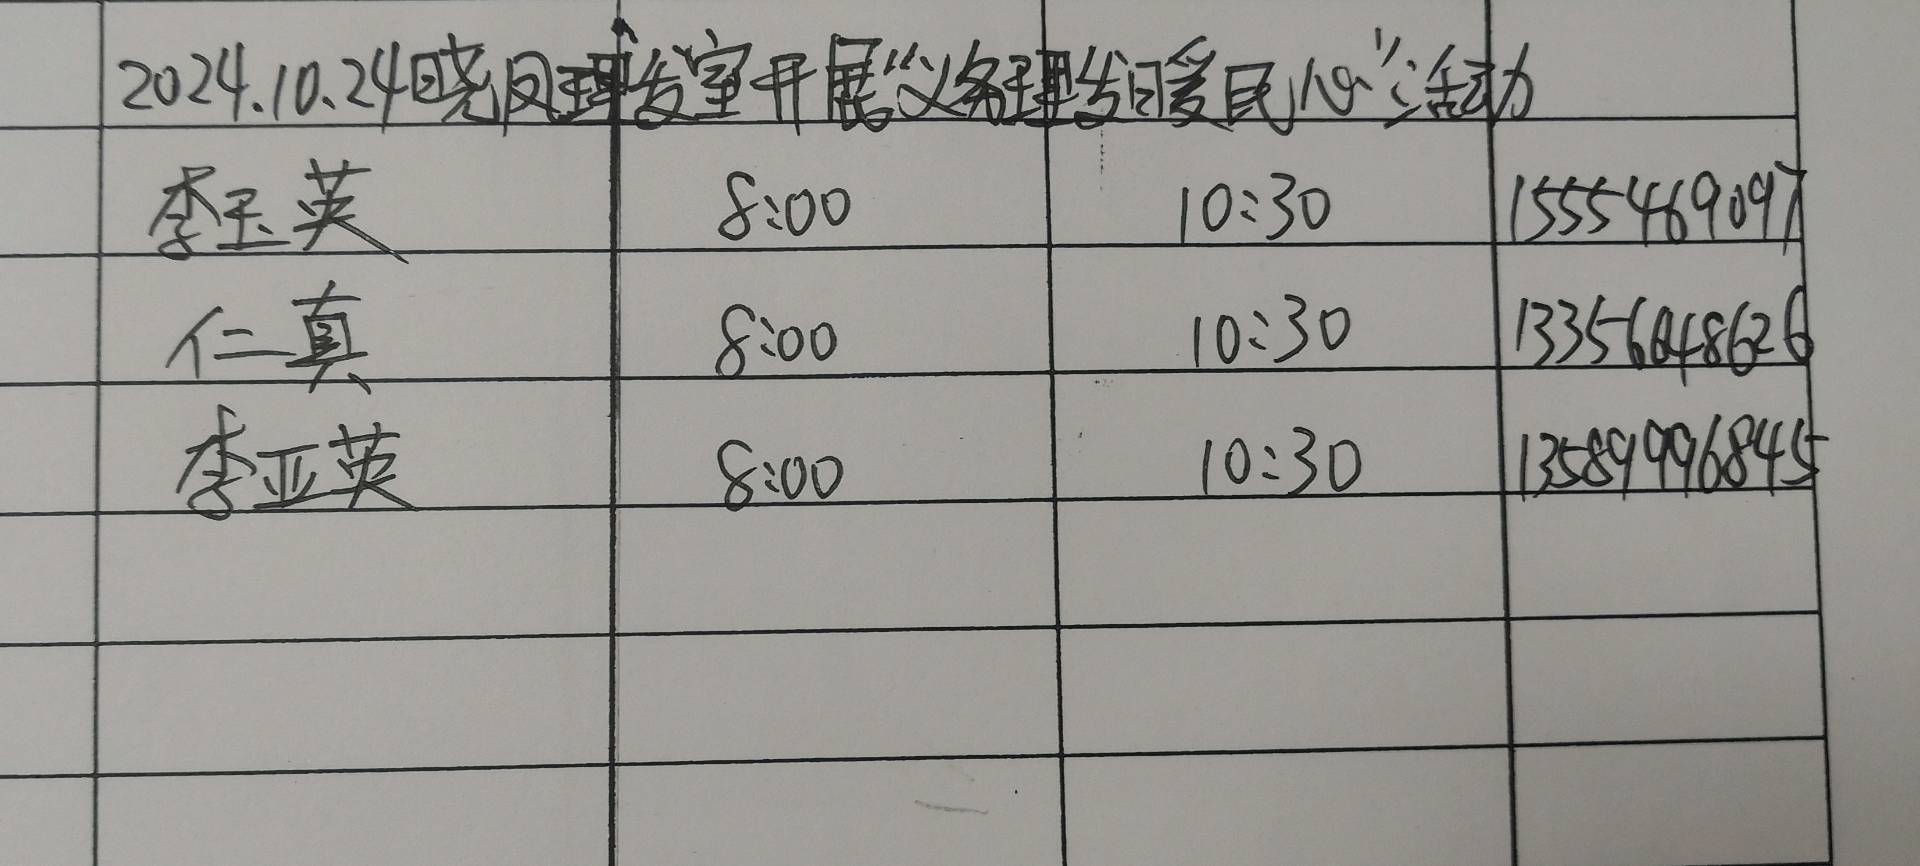 2024.10.24晓风理发室开展“义务理发暖民心”活动
李玉英 8:00 10:30 15554469097
仁真 8:00 10:30 13356648626
李亚英 8:00 10:30 13589996845